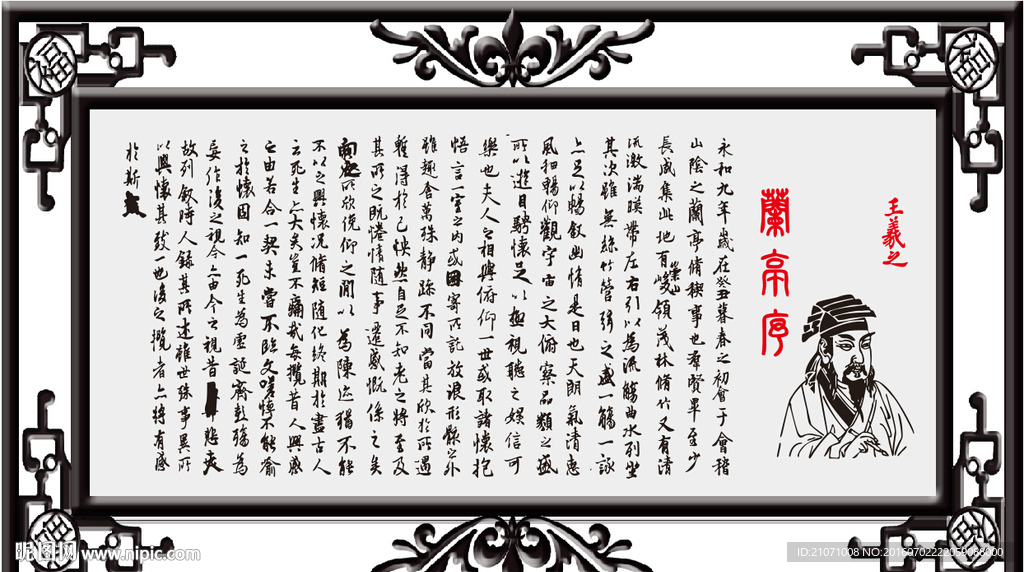 王羲之
蘭亭序
永和九年歲在癸丑暮春之初會于會稽
山陰之蘭亭脩稧事也羣賢畢至少
長咸集此地有崇山峻領茂林脩竹又有清
流激湍暎帶左右引以為流觴曲水列坐
其次雖無絲竹管弦之盛一觴一詠
亦足以暢敘幽情是日也天朗氣清惠
風和暢仰觀宇宙之大俯察品類之盛
所以遊目騁懷足以極視聽之娛信可
樂也夫人之相與俯仰一世或取諸懷抱
悟言一室之內或因寄所託放浪形骸之外
雖趣舍萬殊靜躁不同當其欣於所遇
暫得於己怏然自足不知老之將至及
其所之既惓情隨事遷感慨係之矣
向之所欣俛仰之閒以為陳迹猶不能
不以之興懷況脩短隨化終期於盡古人
云死生亦大矣豈不痛哉每攬昔人興感
之由若合一契未嘗不臨文嗟悼不能喻
之於懷固知一死生為虛誕齊彭殤為
妄作後之視今亦由今之視昔悲夫
故列敘時人錄其所述雖世殊事異所
以興懷其致一也後之攬者亦將有感
於斯文
福
福
福
福
昵图网 www.nipic.com
ID:21071008 NO:20160702222059088000